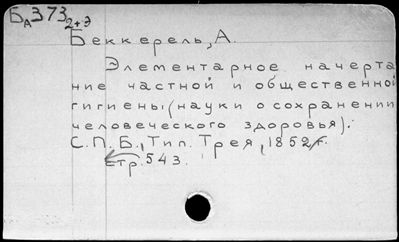 БА373 2+Э
Беккерель, А.
Элементарное начерта
ние частной и общественной
гигиены (науки о сохранении
человеческого здоровья).
С.П.Б., Тип. Трея, 1852 г.
стр. 543.